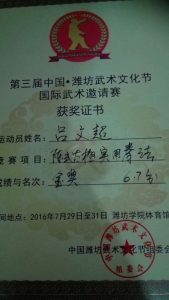 第三届中国·潍坊武术文化节
国际武术邀请赛
获奖证书
运动员姓名: 吕文超
竞赛项目: 陈式太极实用拳法
成绩与名次: 金奖 6.7分
时间地点: 2016年7月29日至31日 潍坊学院体育馆
中国潍坊武术文化节组委会
组委会